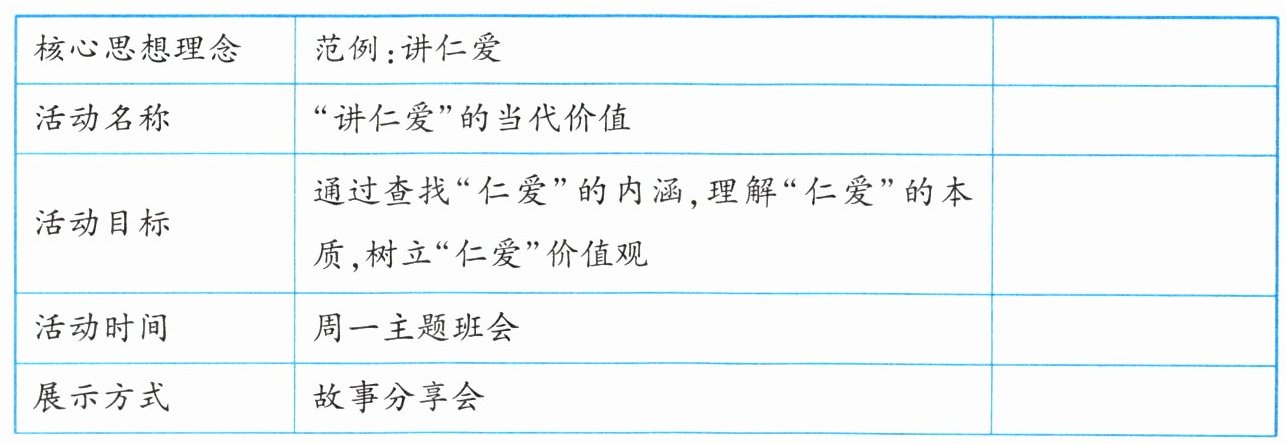 核心思想理念 范例:讲仁爱
活动名称 “讲仁爱”的当代价值
活动目标 通过查找“仁爱”的内涵,理解“仁爱”的本
质,树立“仁爱”价值观
活动时间 周一主题班会
展示方式 故事分享会